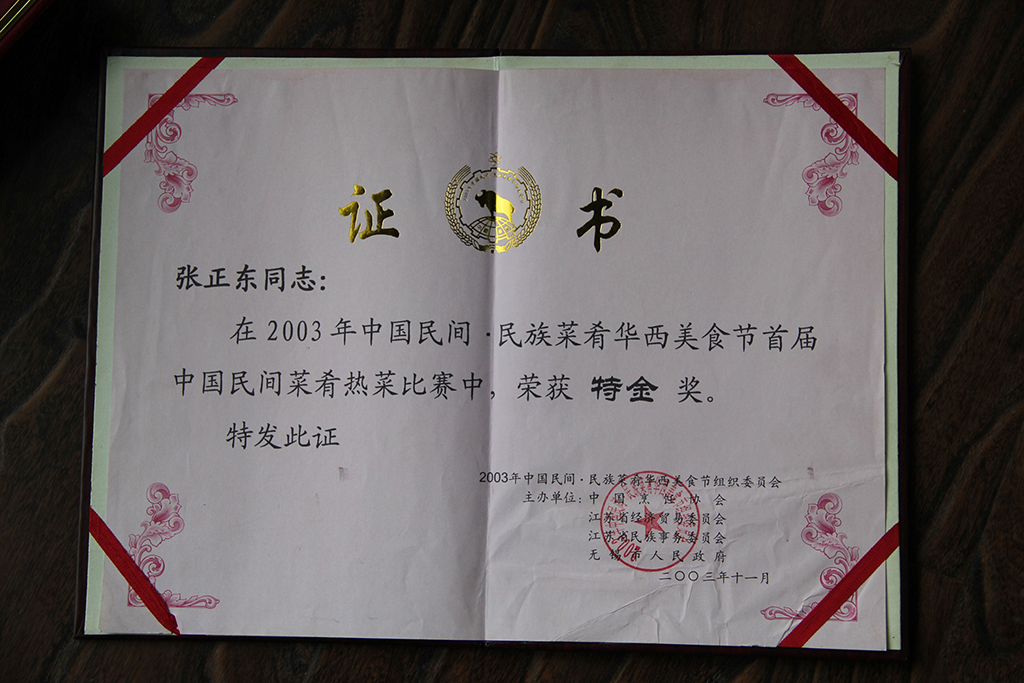 证 书
张正东同志：
在2003年中国民间·民族菜肴华西美食节首届
中国民间菜肴热菜比赛中，荣获 特金 奖。
特发此证
2003年中国民间·民族菜肴华西美食节组织委员会
主办单位：中国烹饪协会
江苏省经济贸易委员会
江苏省民族事务委员会
无锡市人民政府
二〇〇三年十一月